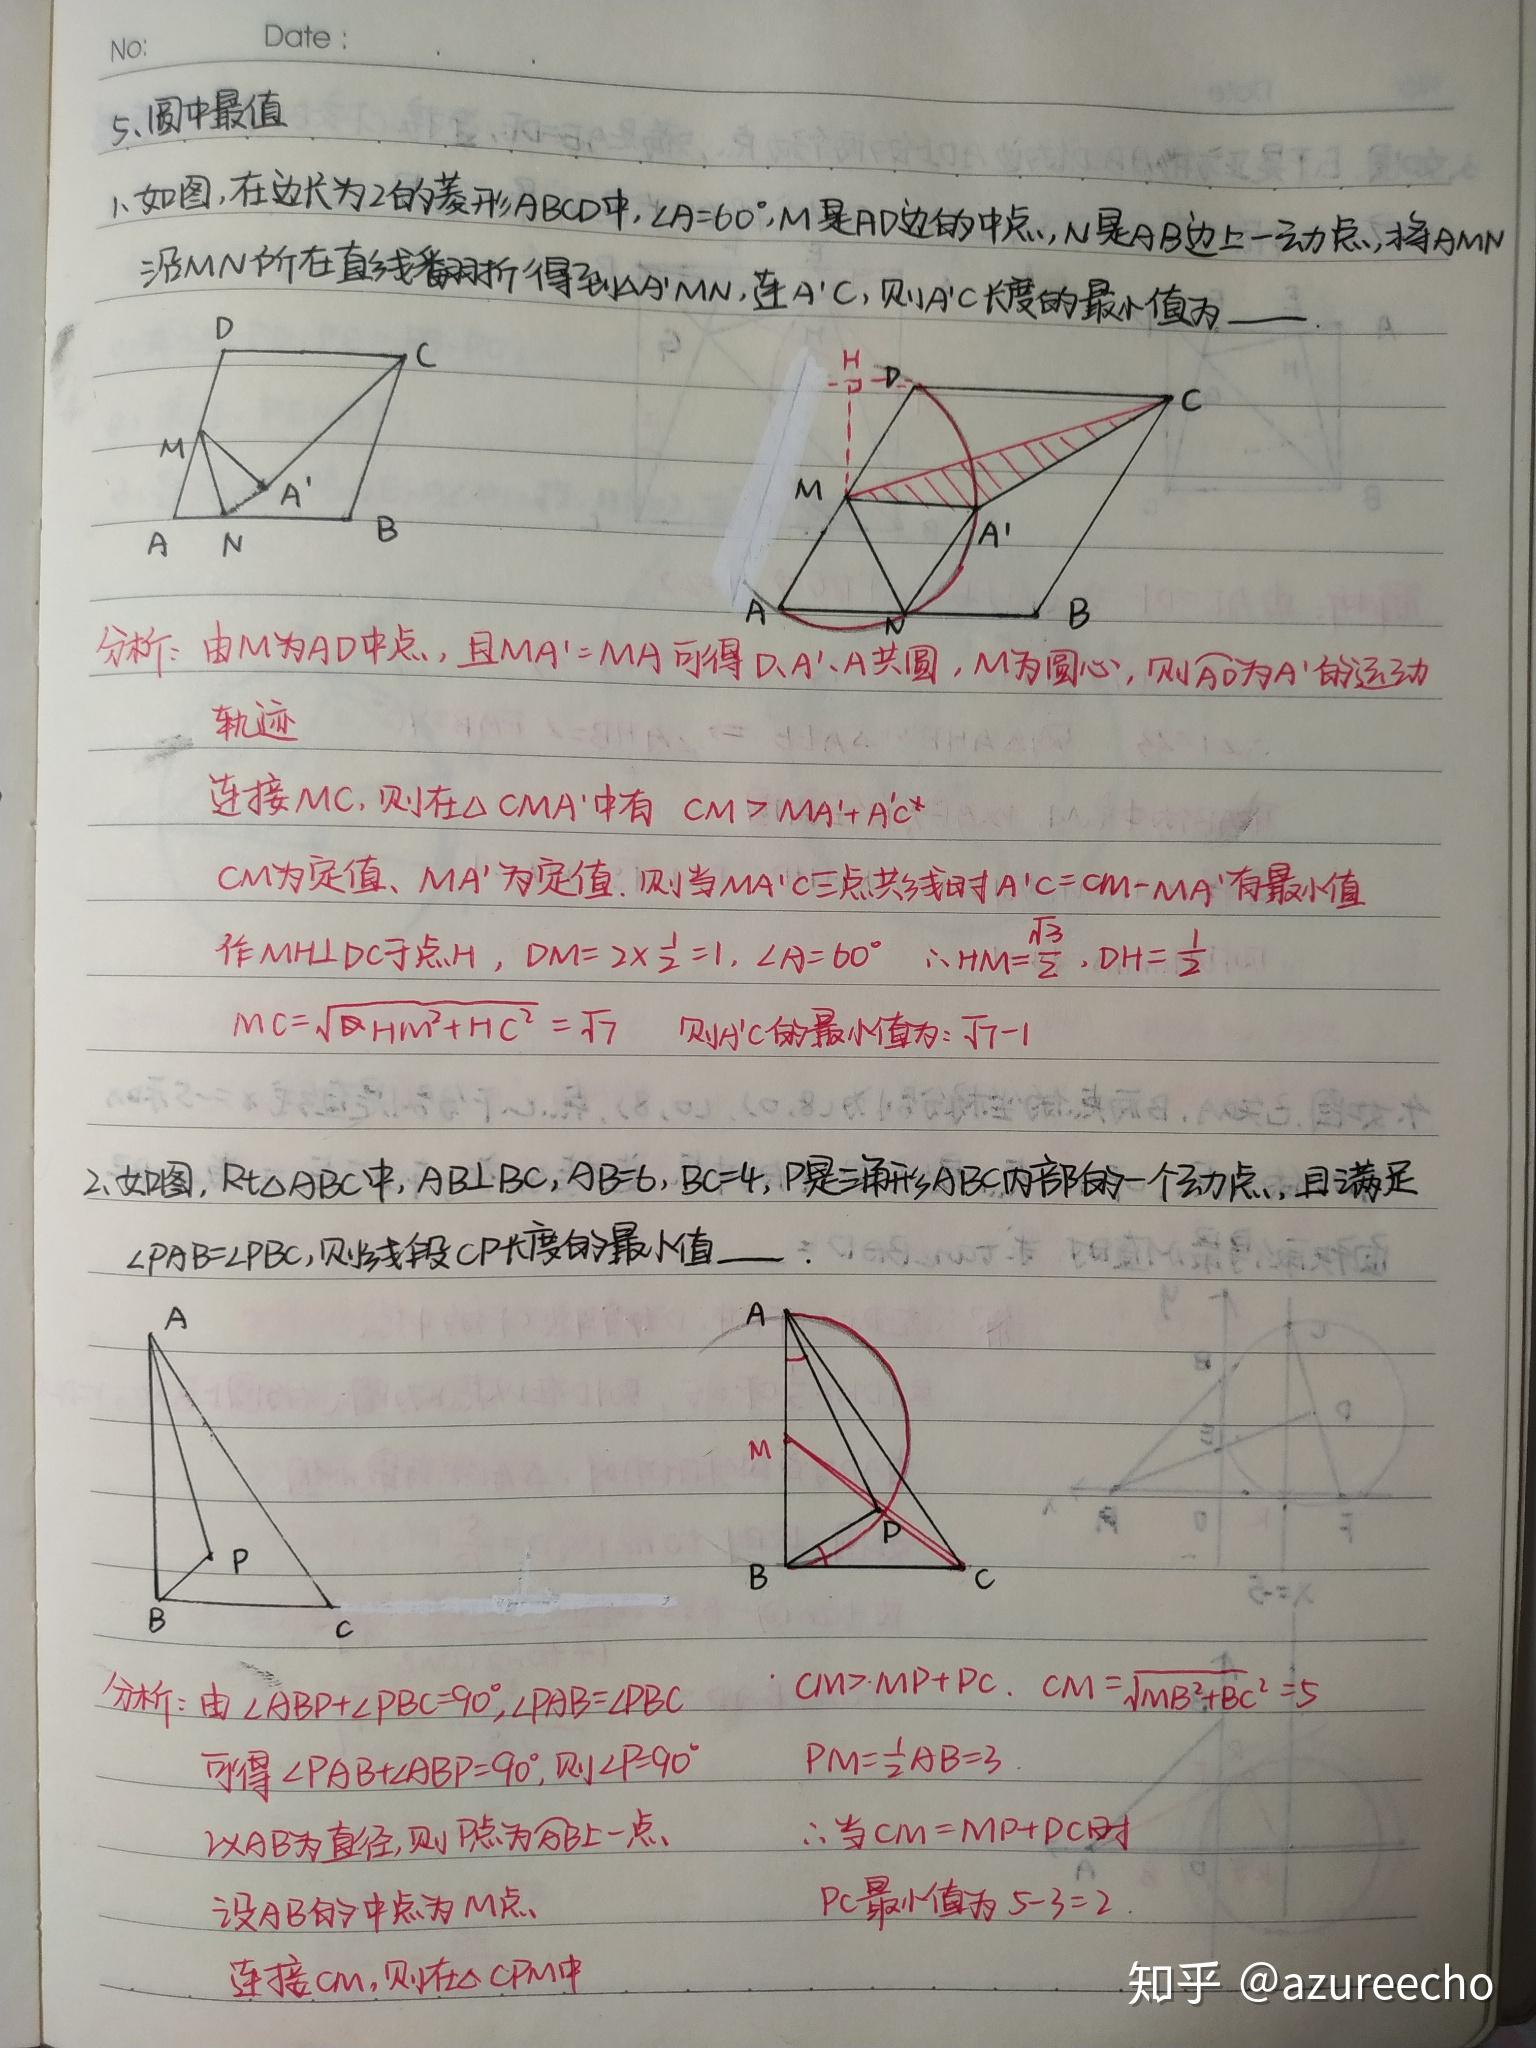 No:
Date:
5、圆中最值
1、如图,在边长为2的菱形ABCD中,∠A=60°,M是AD边的中点,N是AB边上一动点,将AMN
沿MN所在直线翻折得到△A'MN,连A'C,则A'C长度的最小值为____.
D
C
M
A'
A
N
B
H
D
C
M
A'
A
N
B
分析:由M为AD中点,且MA'=MA可得D、A'、A共圆,M为圆心,则AD为A'的运动
轨迹
连接MC,则在△CMA'中有 CM>MA'+A'C*
CM为定值、MA'为定值.则当MA'C三点共线时A'C=CM-MA'有最小值
作MH⊥DC于点H,DM=2×1/2=1.∠A=60° ∴HM=√3/2,DH=1/2
MC=√HM²+HC²=√7 则A'C的最小值为:√7-1
2、如图,Rt△ABC中,AB⊥BC,AB=6,BC=4,P是三角形ABC内部的一个动点,且满足
∠PAB=∠PBC,则线段CP长度的最小值____:
A
P
B
C
A
M
P
B
C
分析:由∠ABP+∠PBC=90°,∠PAB=∠PBC
可得∠PAB+∠ABP=90°,则∠P=90°
以AB为直径,则P点为AB上一点、
设AB的中点为M点、
连接CM,则在△CPM中
CM>MP+PC. CM=√MB²+BC²=5
PM=1/2AB=3.
∴当CM=MP+PC时
PC最小值为5-3=2.
知乎 @azureecho